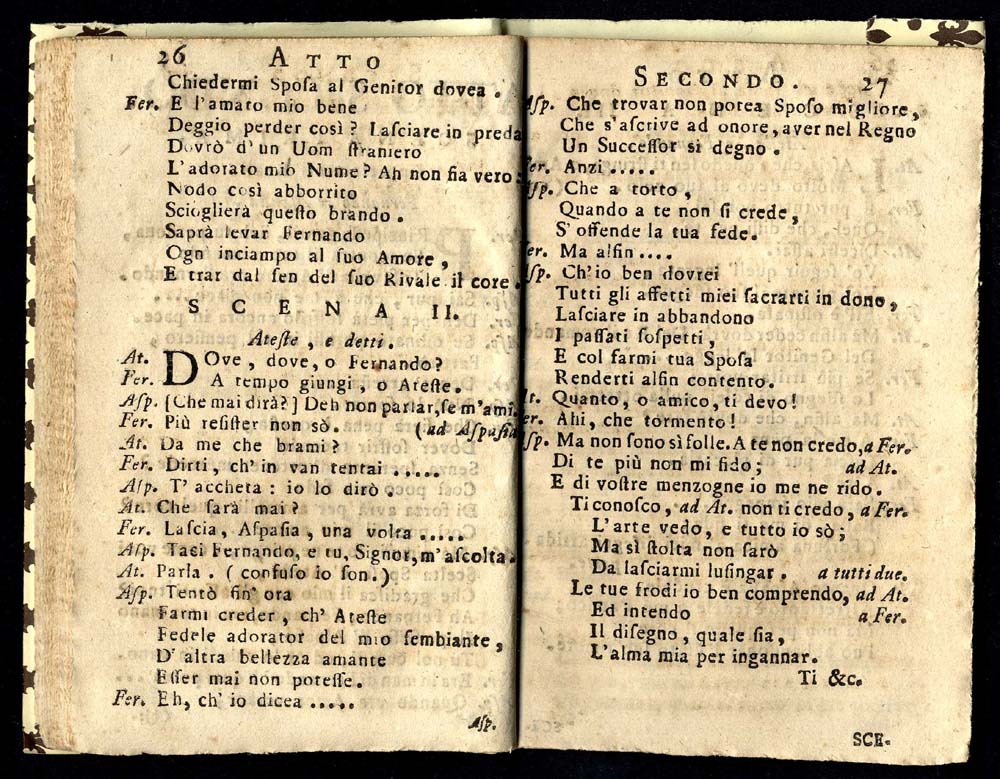 26 ATTO
Chiedermi Spoſa al Genitor dovea.
Fer. E l'amato mio bene
Deggio perder così? Laſciare in preda
Dovrò d'un Uom ſtraniero
L'adorato mio Nume? Ah non ſia vero:
Nodo così abborrito
Scioglierà queſto brando.
Saprà levar Fernando
Ogn inciampo al ſuo Amore,
E trar dal ſen del ſuo Rivale il core.
SCENA II.
Ateſte, e detti.
At. DOve, dove, o Fernando?
Fer. A tempo giungi, o Ateſte.
Aſp. [Che mai dirà?] Deh non parlar, ſe m'ami.
Fer. Più reſiſter non sò. (ad Aſpaſia
At. Da me che brami?
Fer. Dirti, ch'in van tentai .....
Aſp. T'accheta: io lo dirò.
At. Che ſarà mai?
Fer. Laſcia, Aſpaſia, una volta .....
Aſp. Taci Fernando, e tu, Signor, m'aſcolta.
At. Parla. (confuſo io ſon.)
Aſp. Tentò ſin' ora
Farmi creder, ch'Ateſte
Fedele adorator del mio ſembiante,
D'altra bellezza amante
Eſſer mai non poteſſe.
Fer. Eh, ch'io dicea .....
Aſp.
SECONDO. 27
Aſp. Che trovar non potea Spoſo migliore,
Che s'aſcrive ad onore, aver nel Regno
Un Succeſſor sì degno.
Fer. Anzi .....
Aſp. Che a torto,
Quando a te non ſi crede,
S'offende la tua fede.
Fer. Ma alfin ....
Aſp. Ch'io ben dovrei
Tutti gli affetti miei ſacrarti in dono,
Laſciare in abbandono
I paſſati ſoſpetti,
E col farmi tua Spoſa
Renderti alfin contento.
At. Quanto, o amico, ti devo!
Fer. Ahi, che tormento!
Aſp. Ma non ſono sì folle. A te non credo, a Fer.
Di te più non mi fido; ad At.
E di voſtre menzogne io me ne rido.
Ti conoſco, ad At. non ti credo, a Fer.
L'arte vedo, e tutto io sò;
Ma sì ſtolta non ſarò
Da laſciarmi luſingar. a tutti due.
Le tue frodi io ben comprendo, ad At.
Ed intendo a Fer.
Il diſegno, quale ſia,
L'alma mia per ingannar.
Ti &c.
SCE-